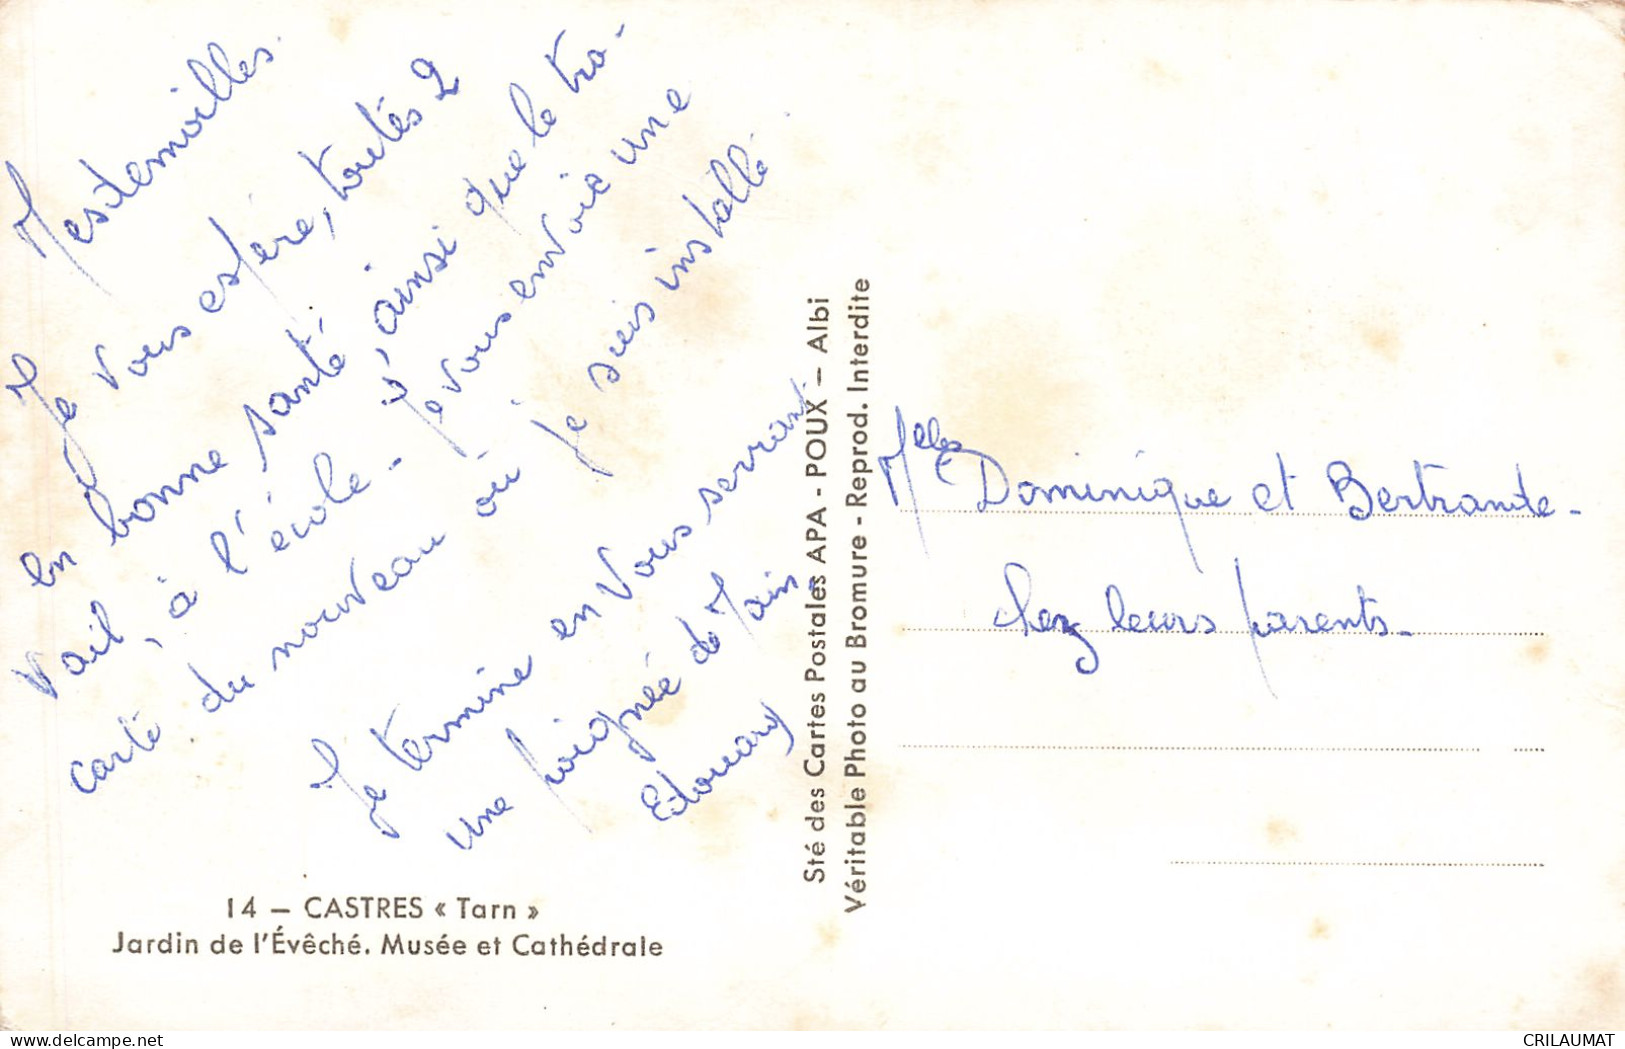 Mesdemoiselles.
Je vous espère, toutes 2
en bonne santé, ainsi que le tra-
vail, à l'école - Je vous envoie une
carte du nouveau où je suis installé.
Je termine en vous serrant
une poignée de Main.
Edouard
14 — CASTRES « Tarn »
Jardin de l'Évêché. Musée et Cathédrale
Sté des Cartes Postales APA - POUX — Albi
Véritable Photo au Bromure - Reprod. Interdite
Melles Dominique et Bertrande -
chez leurs parents -
delcampe.net
CRILAUMAT